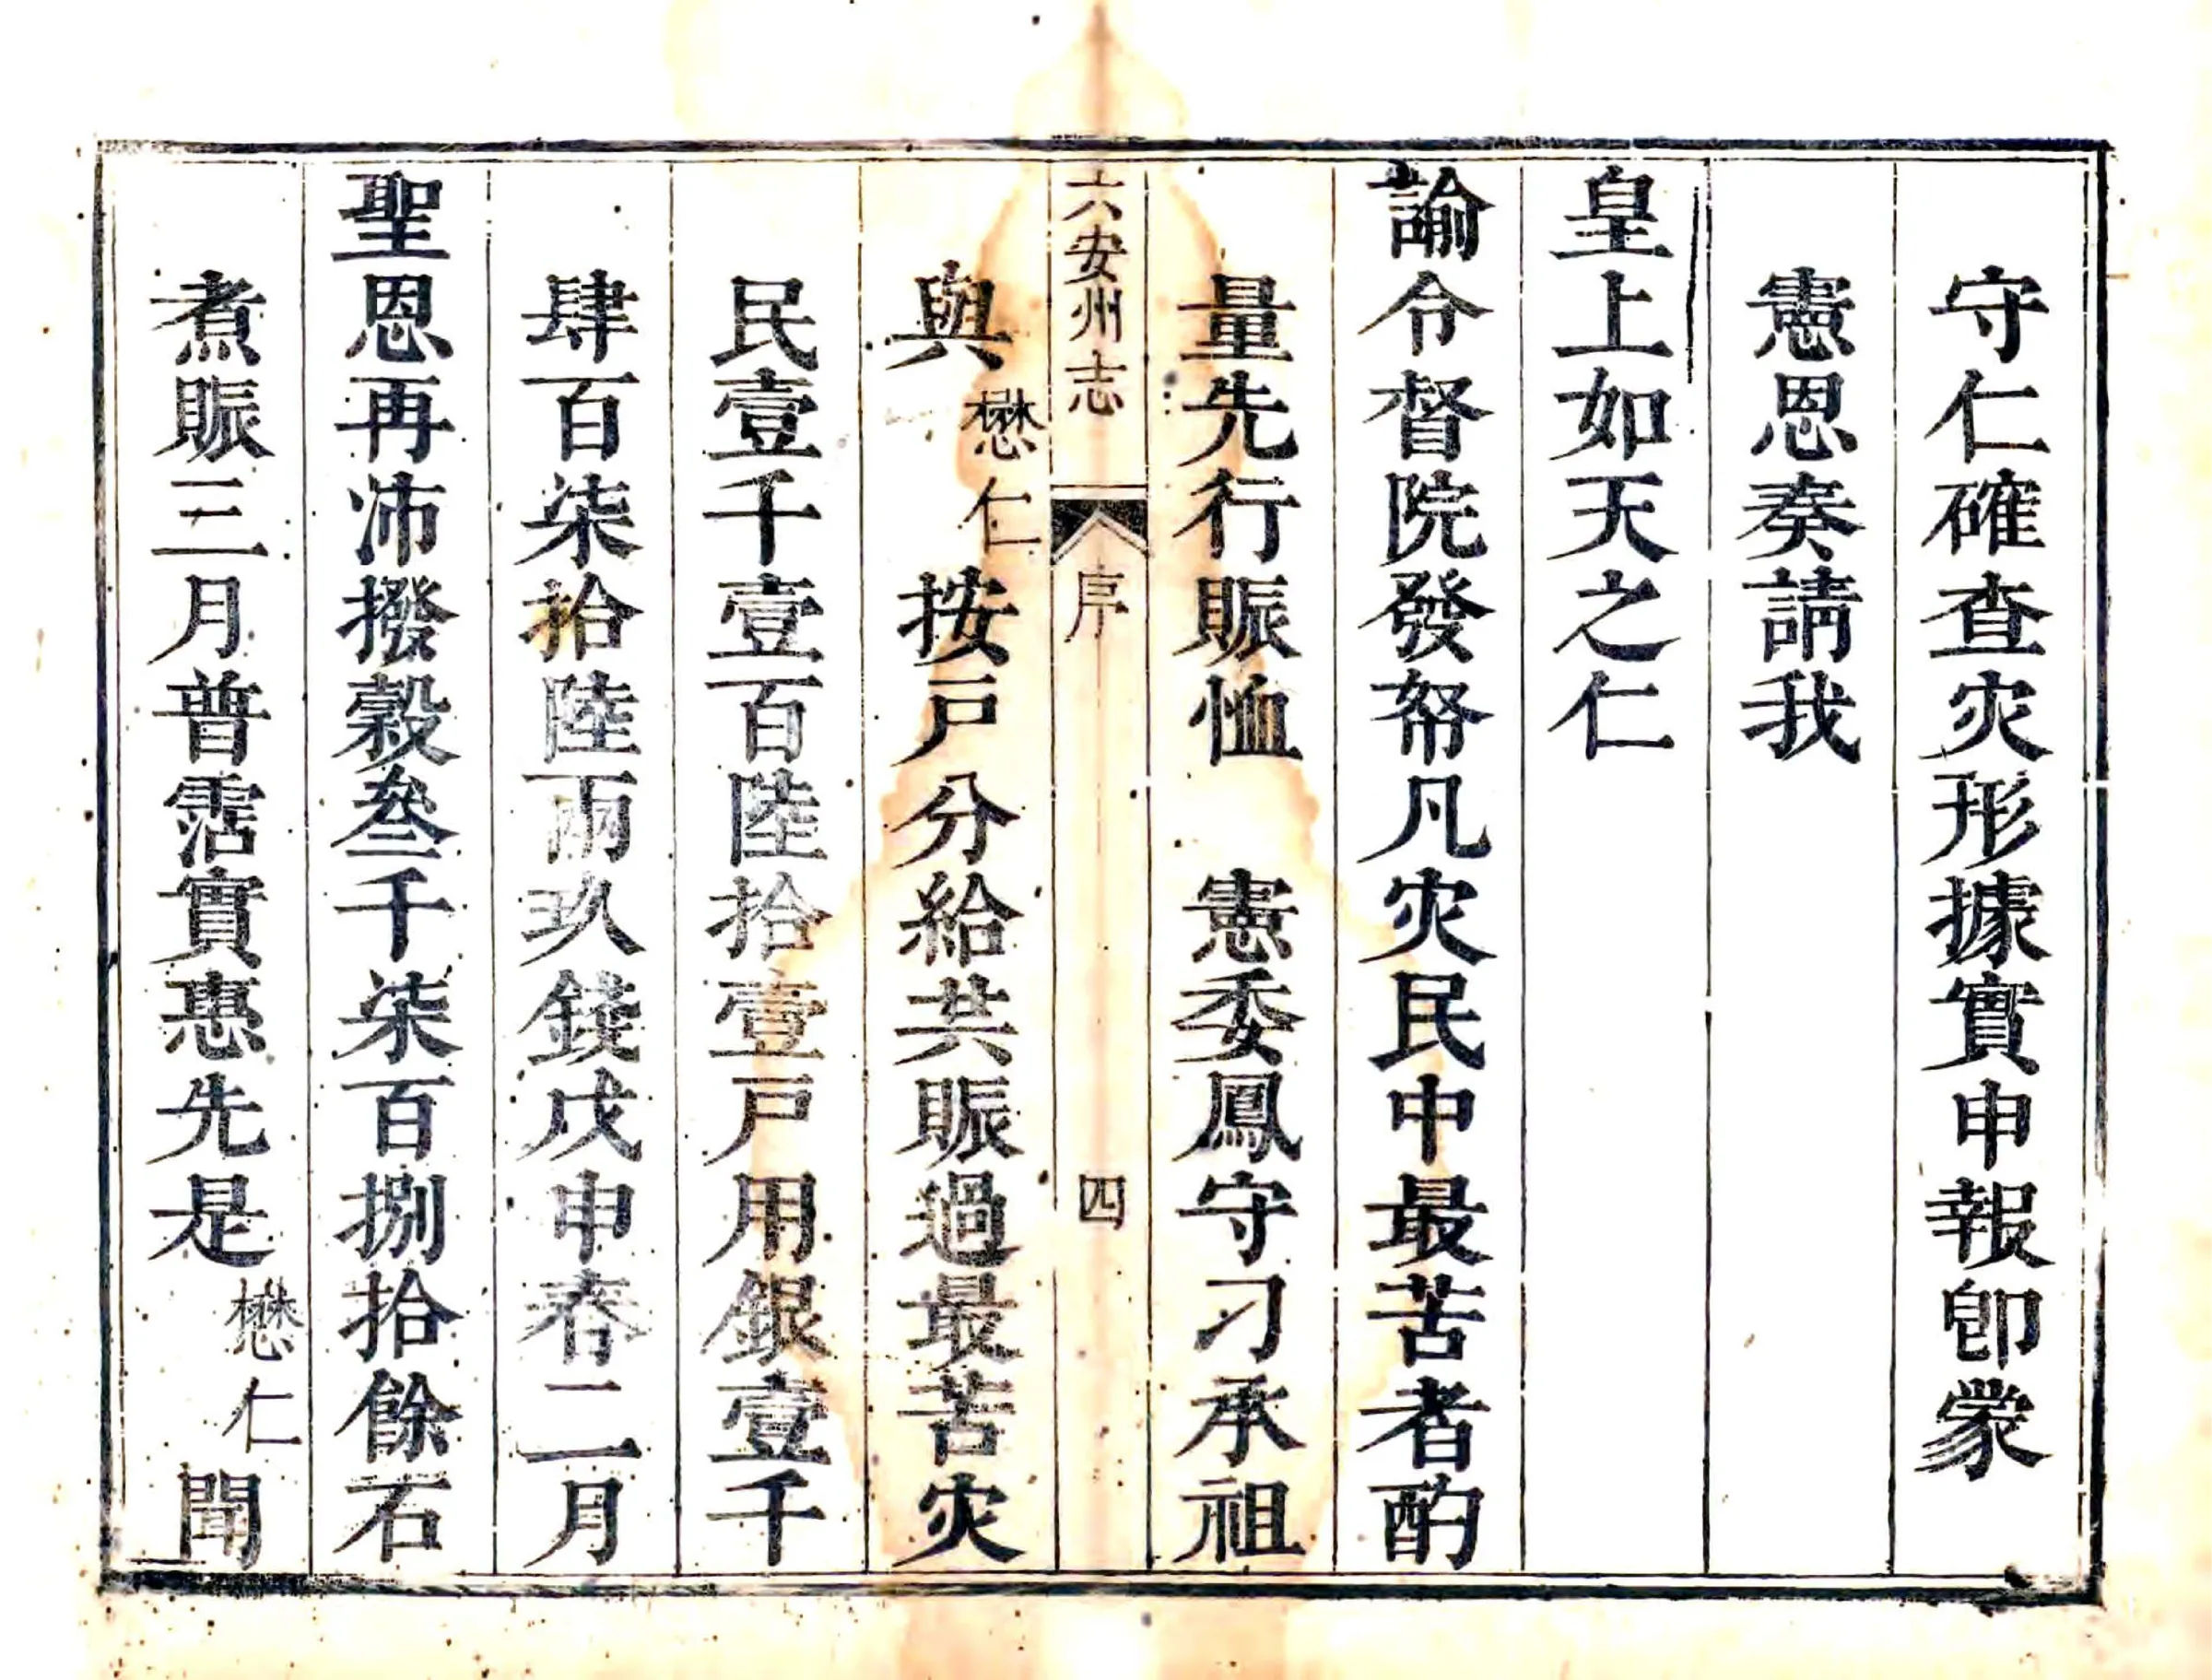 守仁確查灾形據實申報卽蒙
憲恩奏請我
皇上如天之仁
諭令督院發帑凡灾民中最苦者酌
量先行賑恤 憲委鳳守刁承祖
六安州志 序 四
與懋仁按戶分給共賑過最苦灾
民壹千壹百陸拾壹戶用銀壹千
肆百柒拾陸兩玖錢戊申春二月
聖恩再沛撥穀叁千柒百捌拾餘石
煮賑三月普霑實惠先是懋仁聞